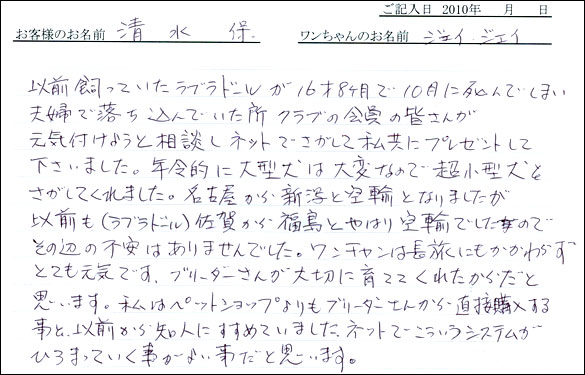 ご記入日 2010年 月 日
お客様のお名前 清水 保 ワンちゃんのお名前 ジェイ・ジェイ
以前飼っていたラブラドールが16才8ヶ月で10月に死んでしまい
夫婦で落ち込んでいた所クラブの会員の皆さんが
元気付けようと相談しネットでさがして私共にプレゼントして
下さいました。年令的に大型犬は大変なので超小型犬を
さがしてくれました。名古屋から新潟と空輸となりましたが
以前も(ラブラドール)佐賀から福島とやはり空輸でしたので
その辺の不安はありませんでした。ワンチャンは長旅にもかかわらず
とても元気です、ブリーダーさんが大切に育ててくれたからだと
思います。私はペットショップよりもブリーダーさんから直接購入する
事と、以前から知人にすすめていました、ネットでこういうシステムが
ひろまっていく事がよい事だと思います。